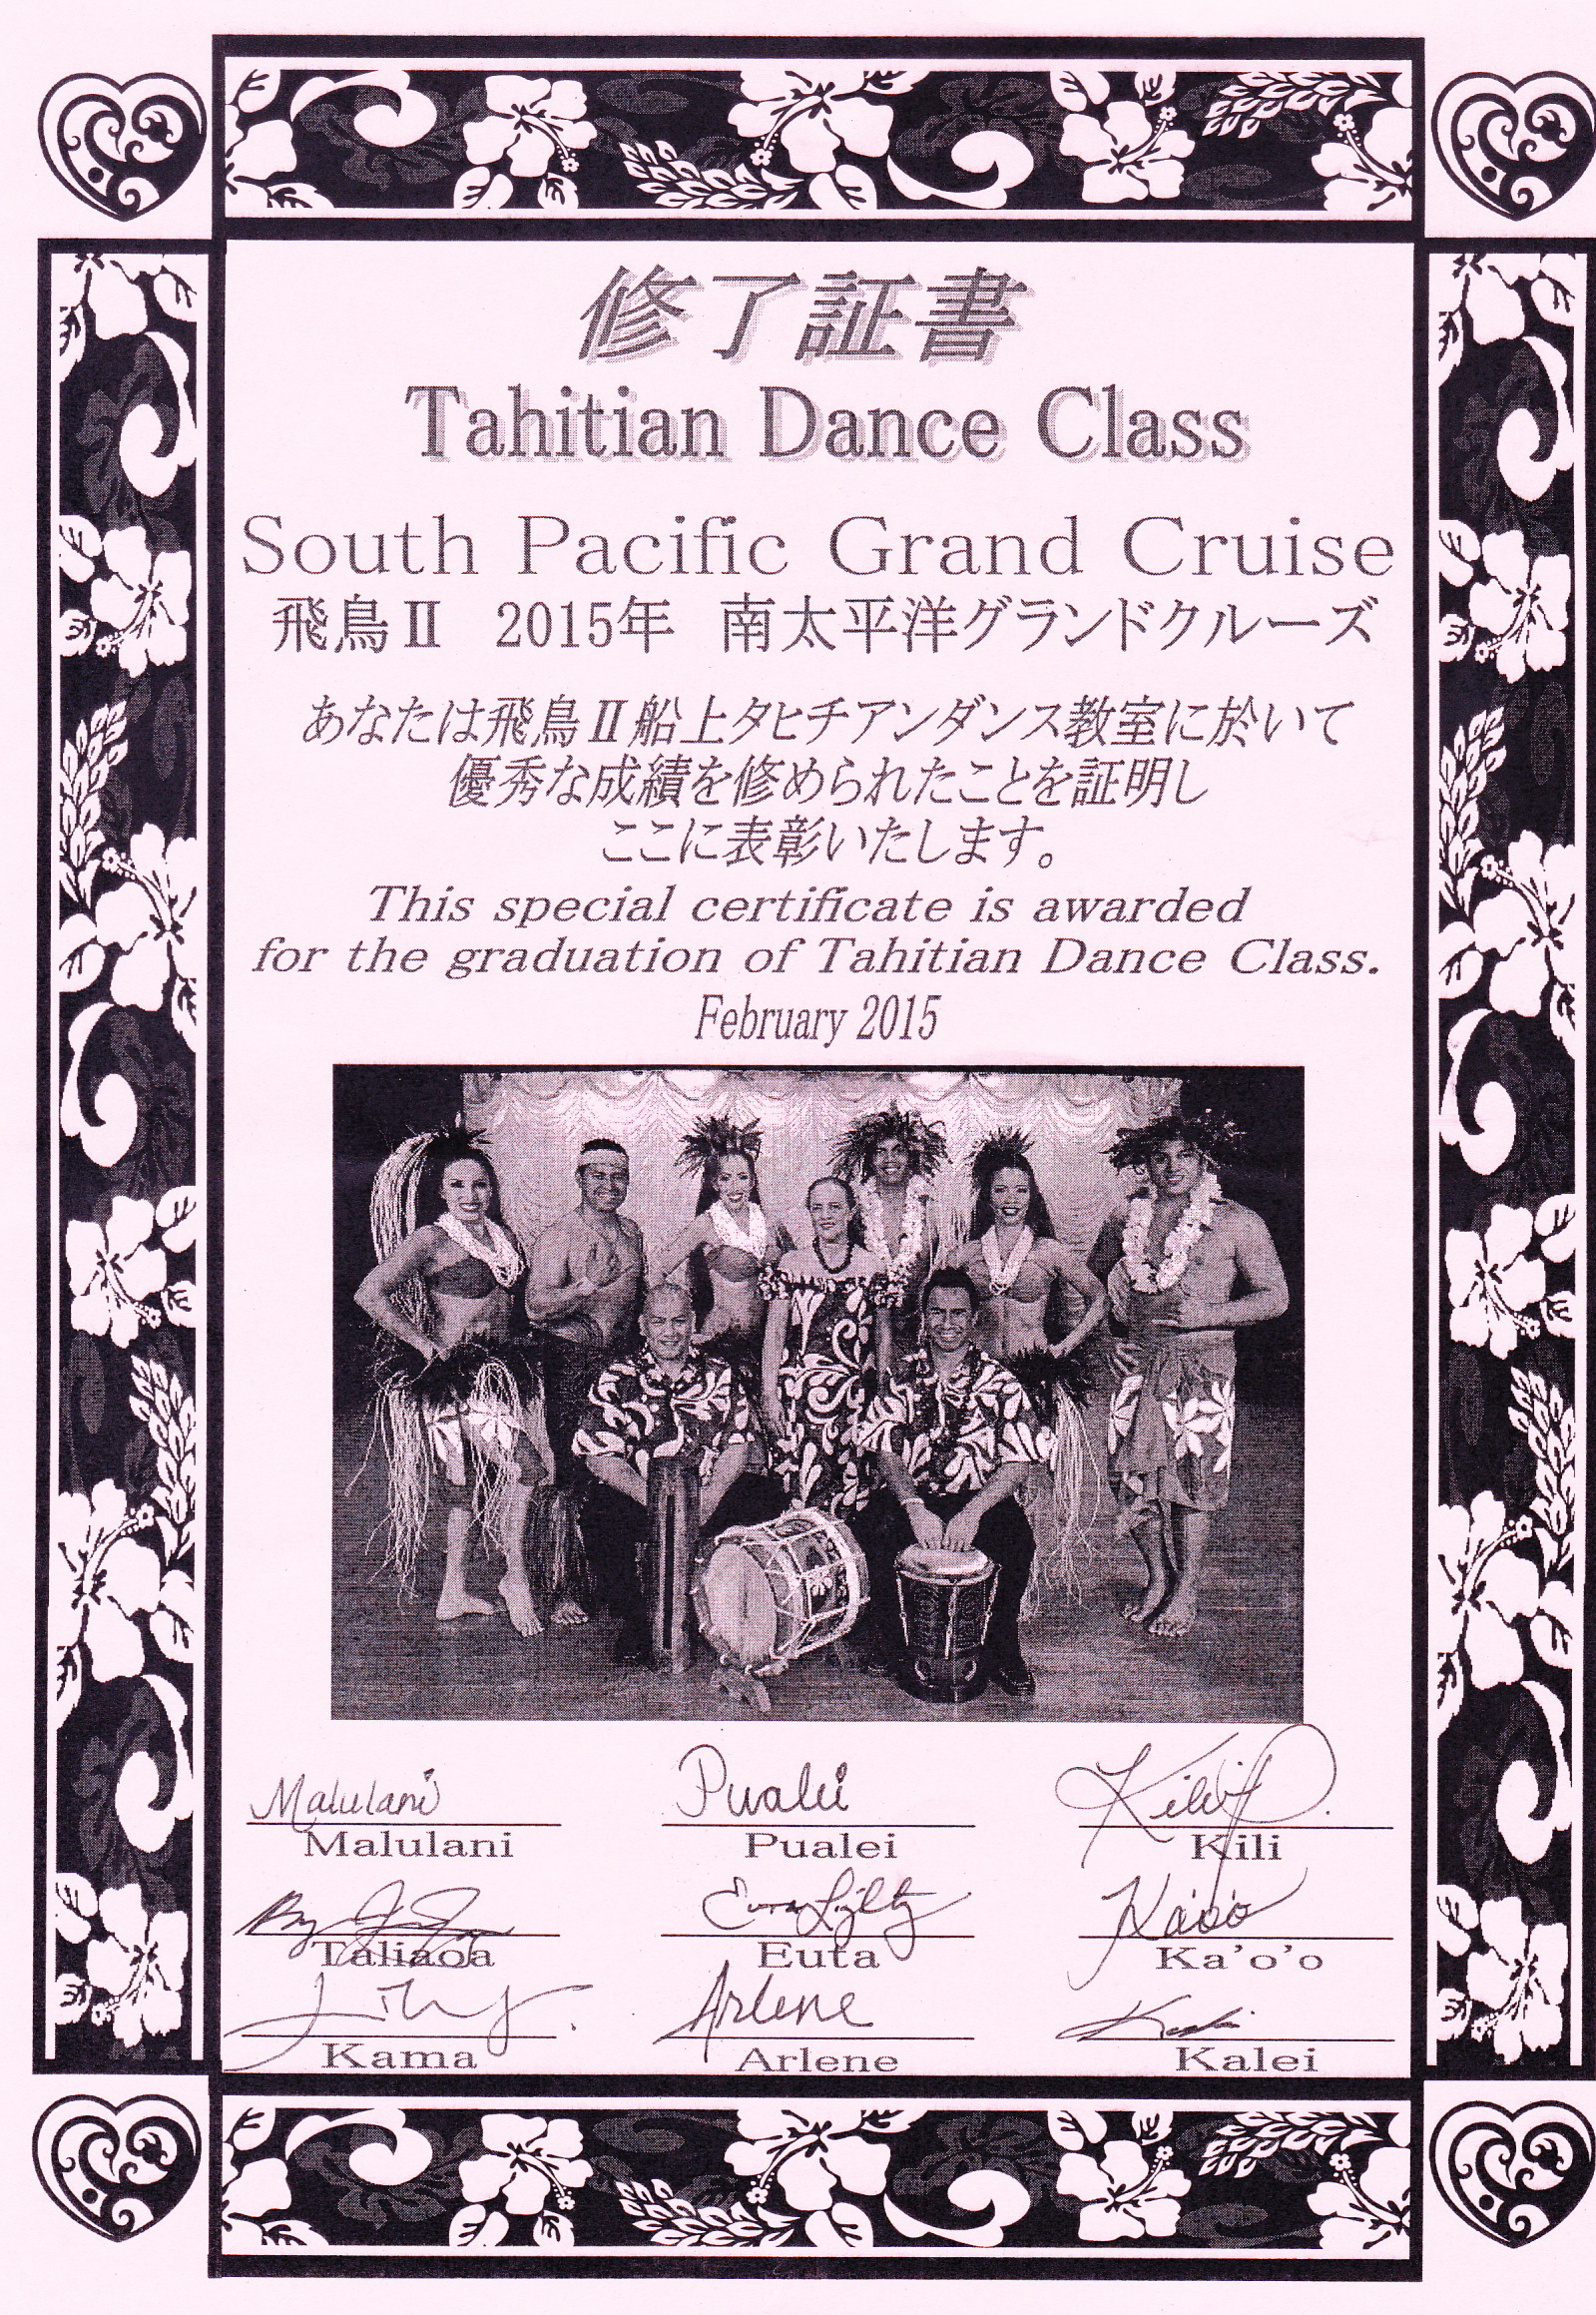 修了証書
Tahitian Dance Class
South Pacific Grand Cruise
飛鳥Ⅱ 2015年 南太平洋グランドクルーズ
あなたは飛鳥Ⅱ船上タヒチアンダンス教室に於いて
優秀な成績を修められたことを証明し
ここに表彰いたします。
This special certificate is awarded
for the graduation of Tahitian Dance Class.
February 2015
Malulani Pualei Kili
Malulani Pualei Kili
Ka'o'o
Taliaoa Euta Ka'o'o
Arlene
Kama Arlene Kalei